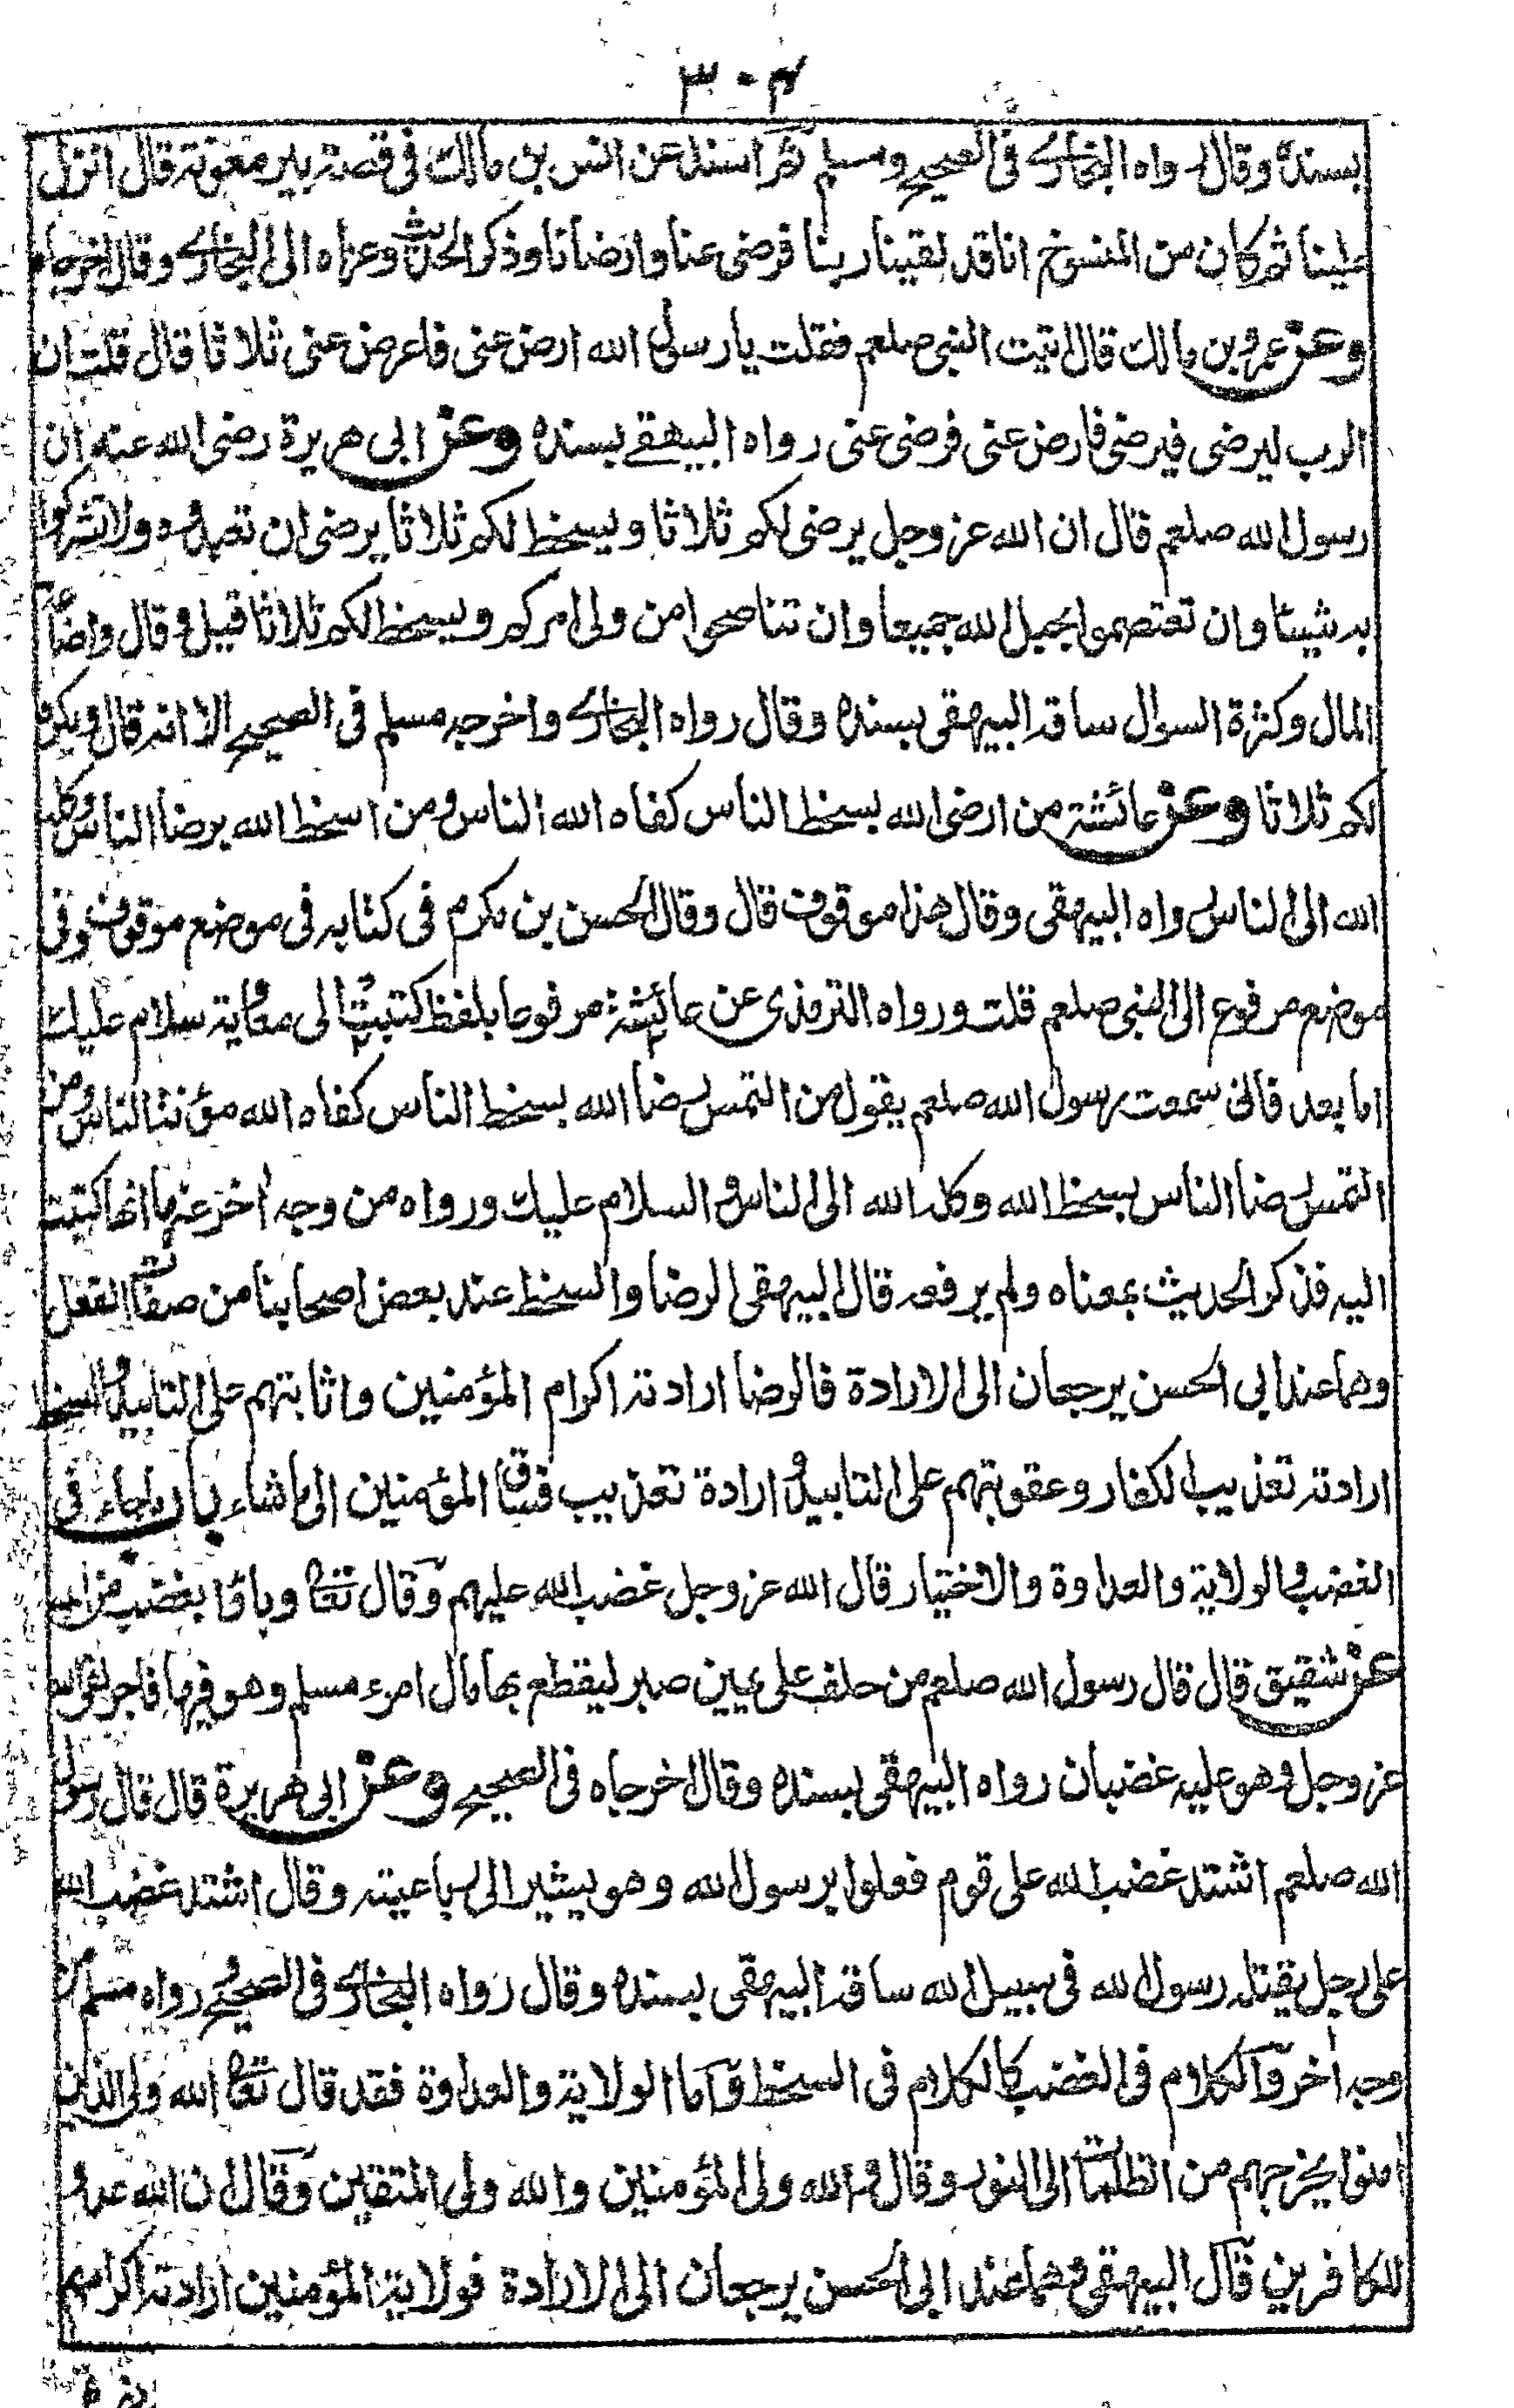 ٣٠٤
بسنده وقال رواه البخارى فى الصحيح ومسلم ثم اسند عن انس بن مالك فى قصة بير معونة قال انزل
علينا ثم كان من المنسوخ انا قد لقينا ربنا فرضى عنا وارضانا وذكر الحديث وعزاه الى البخارى وقال اخرجاه
وعن عمرو بن مالك قال اتيت النبى صلعم فقلت يا رسول الله ارض عنى فاعرض عنى ثلاثا قال قلت ان
الرب ليرضى فيرضى فارض عنى فرضى عنى رواه البيهقے بسنده وعن ابى هريرة رضى الله عنه ان
رسول الله صلعم قال ان الله عز وجل يرضى لكم ثلاثا ويسخط لكم ثلاثا يرضى ان تعبدوه ولا تشركوا
به شيئا وان تعتصموا بحبل الله جميعا وان تناصحوا من ولى امركم ويسخط لكم ثلاثا قيل وقال واضاعة
المال وكثرة السوال ساقه البيهقى بسنده وقال رواه البخارى واخرجه مسلم فى الصحيح الا انه قال ويكره
لكم ثلاثا وعن عائشة من ارضى الله بسخط الناس كفاه الله الناس ومن اسخط الله برضا الناس وكله
الله الى الناس رواه البيهقى وقال هذا موقوف قال وقال الحسن بن مكرم فى كتابه فى موضع موقوف وفى
موضع مرفوع الى النبى صلعم قلت ورواه الترمذى عن عائشة مرفوعا بلفظ كتبت الى معاوية سلام عليك
اما بعد فانى سمعت رسول الله صلعم يقول من التمس رضا الله بسخط الناس كفاه الله مؤنة الناس ومن
التمس رضا الناس بسخط الله وكله الله الى الناس والسلام عليك ورواه من وجه اخر عنها انها كتبت
اليه فذكر الحديث بمعناه ولم يرفعه قال البيهقى الرضا والسخط عند بعض اصحابنا من صفات الفعل
وهما عند ابى الحسن يرجعان الى الارادة فالرضا ارادته اكرام المؤمنين واثابتهم على التابيد والسخط
ارادته تعذيب الكفار وعقوبتهم على التابيد وارادة تعذيب فساق المؤمنين الى ما شاء باب ما جاء فى
الغضب والولاية والعداوة والاختيار قال الله عز وجل غضب الله عليهم وقال تعا وباؤا بغضب من الله
عن شقيق قال قال رسول الله صلعم من حلف على يمين صبر ليقطع بها مال امرء مسلم وهو فيها فاجر لقى الله
عز وجل وهو عليه غضبان رواه البيهقى بسنده وقال اخرجاه فى الصحيح وعن ابى هريرة قال قال رسول
الله صلعم اشتد غضب الله على قوم فعلوا برسول الله وهو يشير الى رباعيته وقال اشتد غضب الله
على رجل يقتله رسول الله فى سبيل الله ساقه البيهقى بسنده وقال رواه البخارى فى الصحيح ورواه مسلم من
وجه اخر والكلام فى الغضب كالكلام فى السخط واما الولاية والعداوة فقد قال تعا الله ولى الذين
امنوا يخرجهم من الظلمات الى النور وقال والله ولى المؤمنين والله ولى المتقين وقال ان الله عدو
للكافرين قال البيهقى وهما عند ابى الحسن يرجعان الى الارادة فولاية المؤمنين ارادته اكرامهم